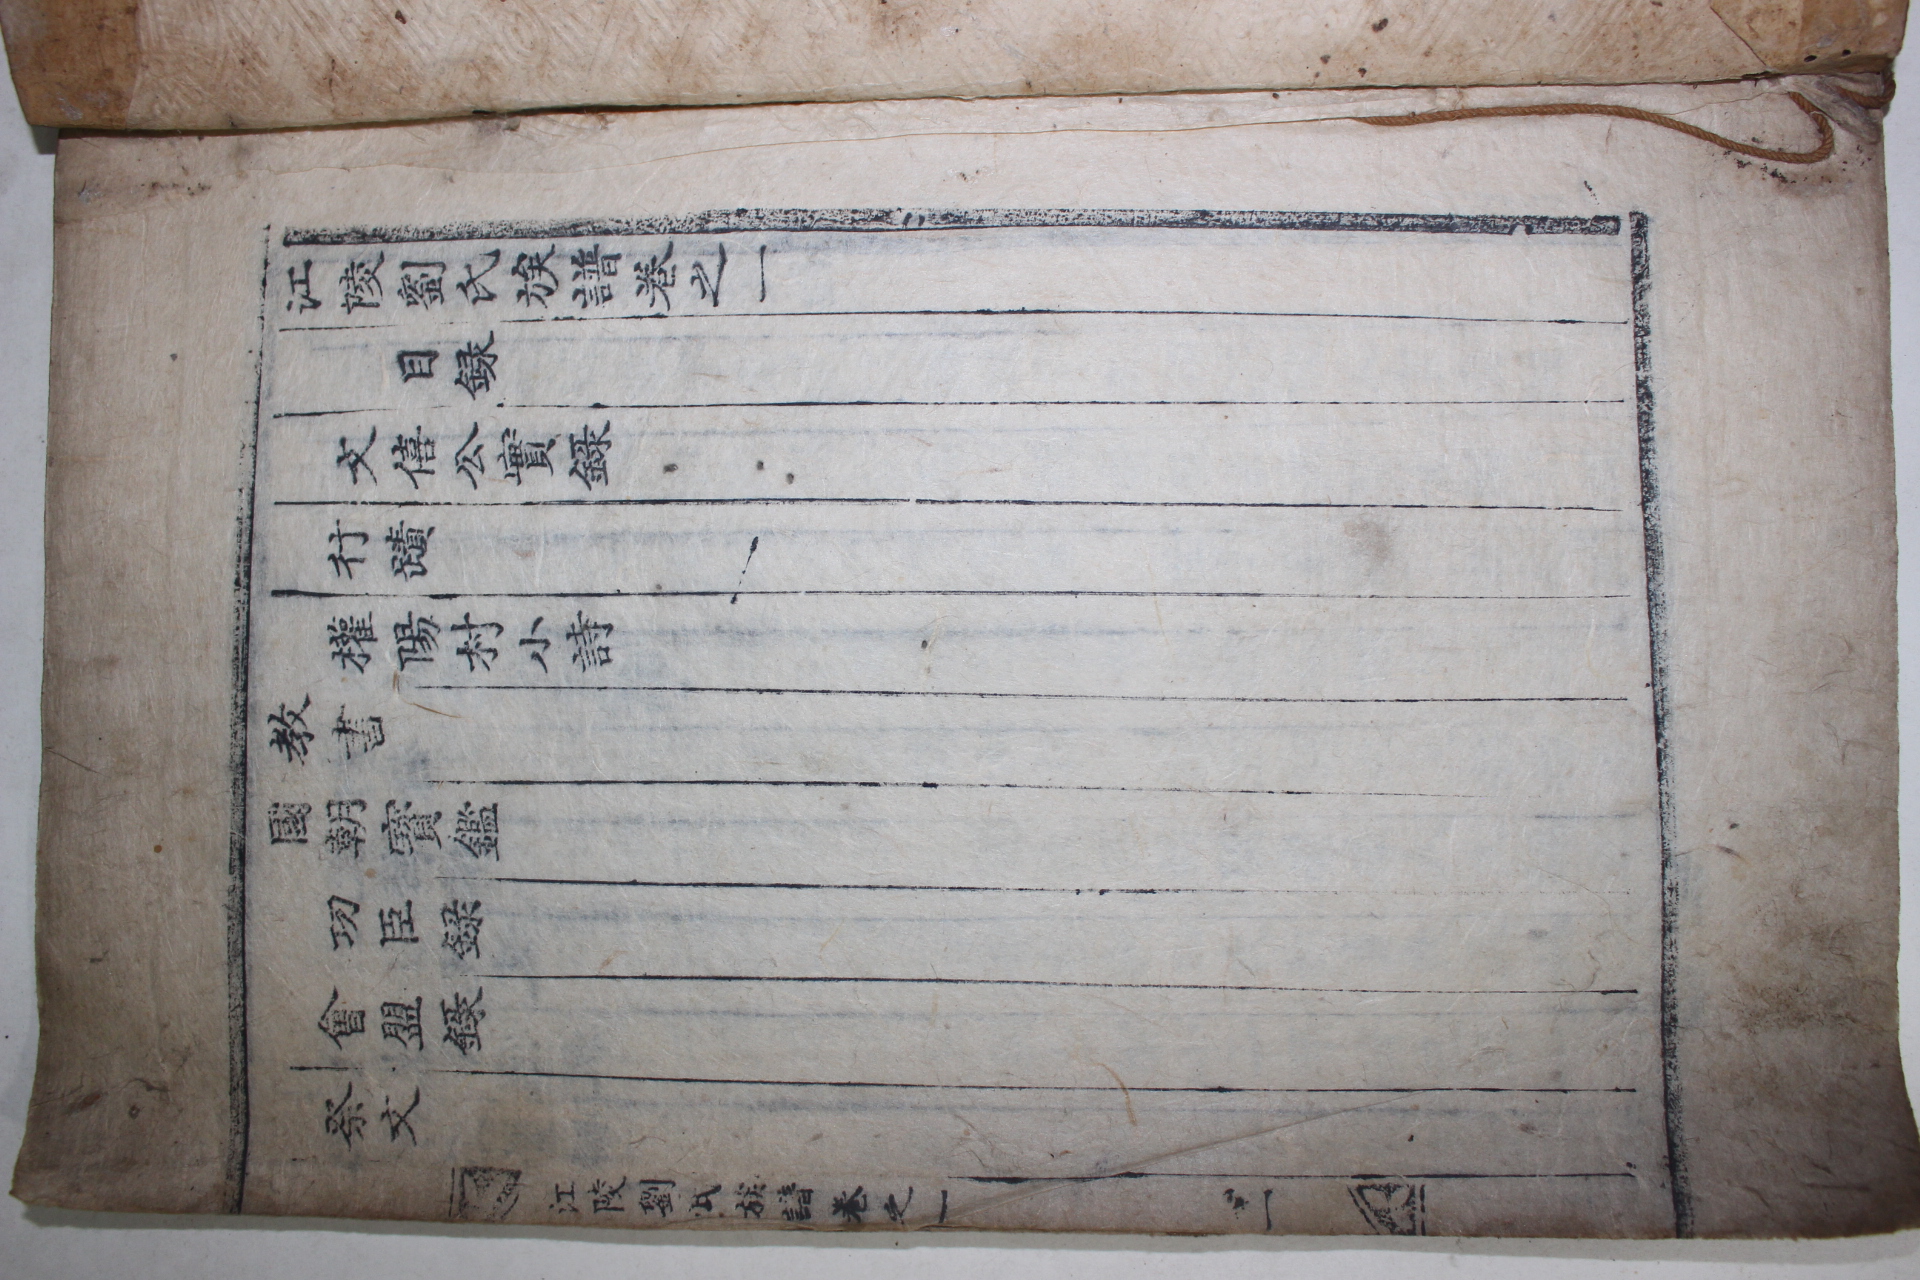 江陵劉氏族譜卷之一
目録
文僖公實録
行蹟
權陽村小詩
教書
國朝寶鑑
功臣録
會盟録
祭文
江陵劉氏族譜卷之一
一